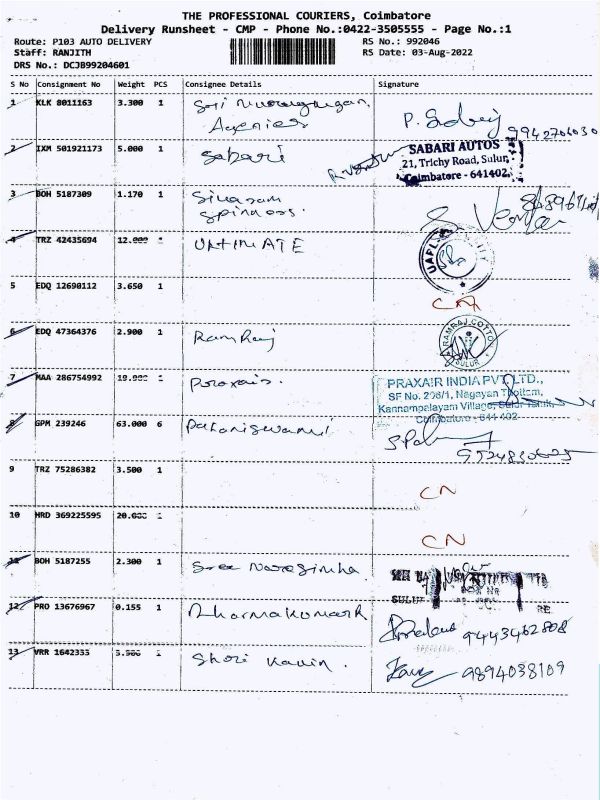 THE PROFESSIONAL COURIERS, Coimbatore
Delivery Runsheet - CMP - Phone No.:0422-3505555 - Page No.:1
Route: P103 AUTO DELIVERY RS No.: 992046
Staff: RANJITH RS Date: 03-Aug-2022
DRS No.: DCJB99204601
S No Consignment No Weight PCS Consignee Details Signature
1 KLK 8011163 3.300 1 Sri Murugan
Agencies 9942704030
2 IXM 501921173 5.000 1 Sabari SABARI AUTOS
21, Trichy Road, Sulur,
Coimbatore - 641402
3 BOH 5187309 1.170 1 Sivaram
Spinners.
4 TRZ 42435694 12.000 Ultimate
5 EDQ 12690112 3.650 1 CN
6 EDQ 47364376 2.900 1 RamRaj RAMRAJ COTTON
SULUR
7 MAA 286754992 Praxair. PRAXAIR INDIA PVT. LTD.,
SF No. 206/1, Nagayan Thottam,
Kannampalayam Village, Sulur Taluk,
Coimbatore - 641 402
8 GPM 239246 63.000 6 Palaniswami
9 TRZ 75286382 3.500 1 CN
10 HRD 369225595 20.000 CN
11 BOH 5187255 2.300 1 Sree Narasimha.
SULUR
12 PRO 13676967 0.155 1 Dharmakumark 9443462808
13 VRR 1642333 1 Shori Kavin. 9894038109